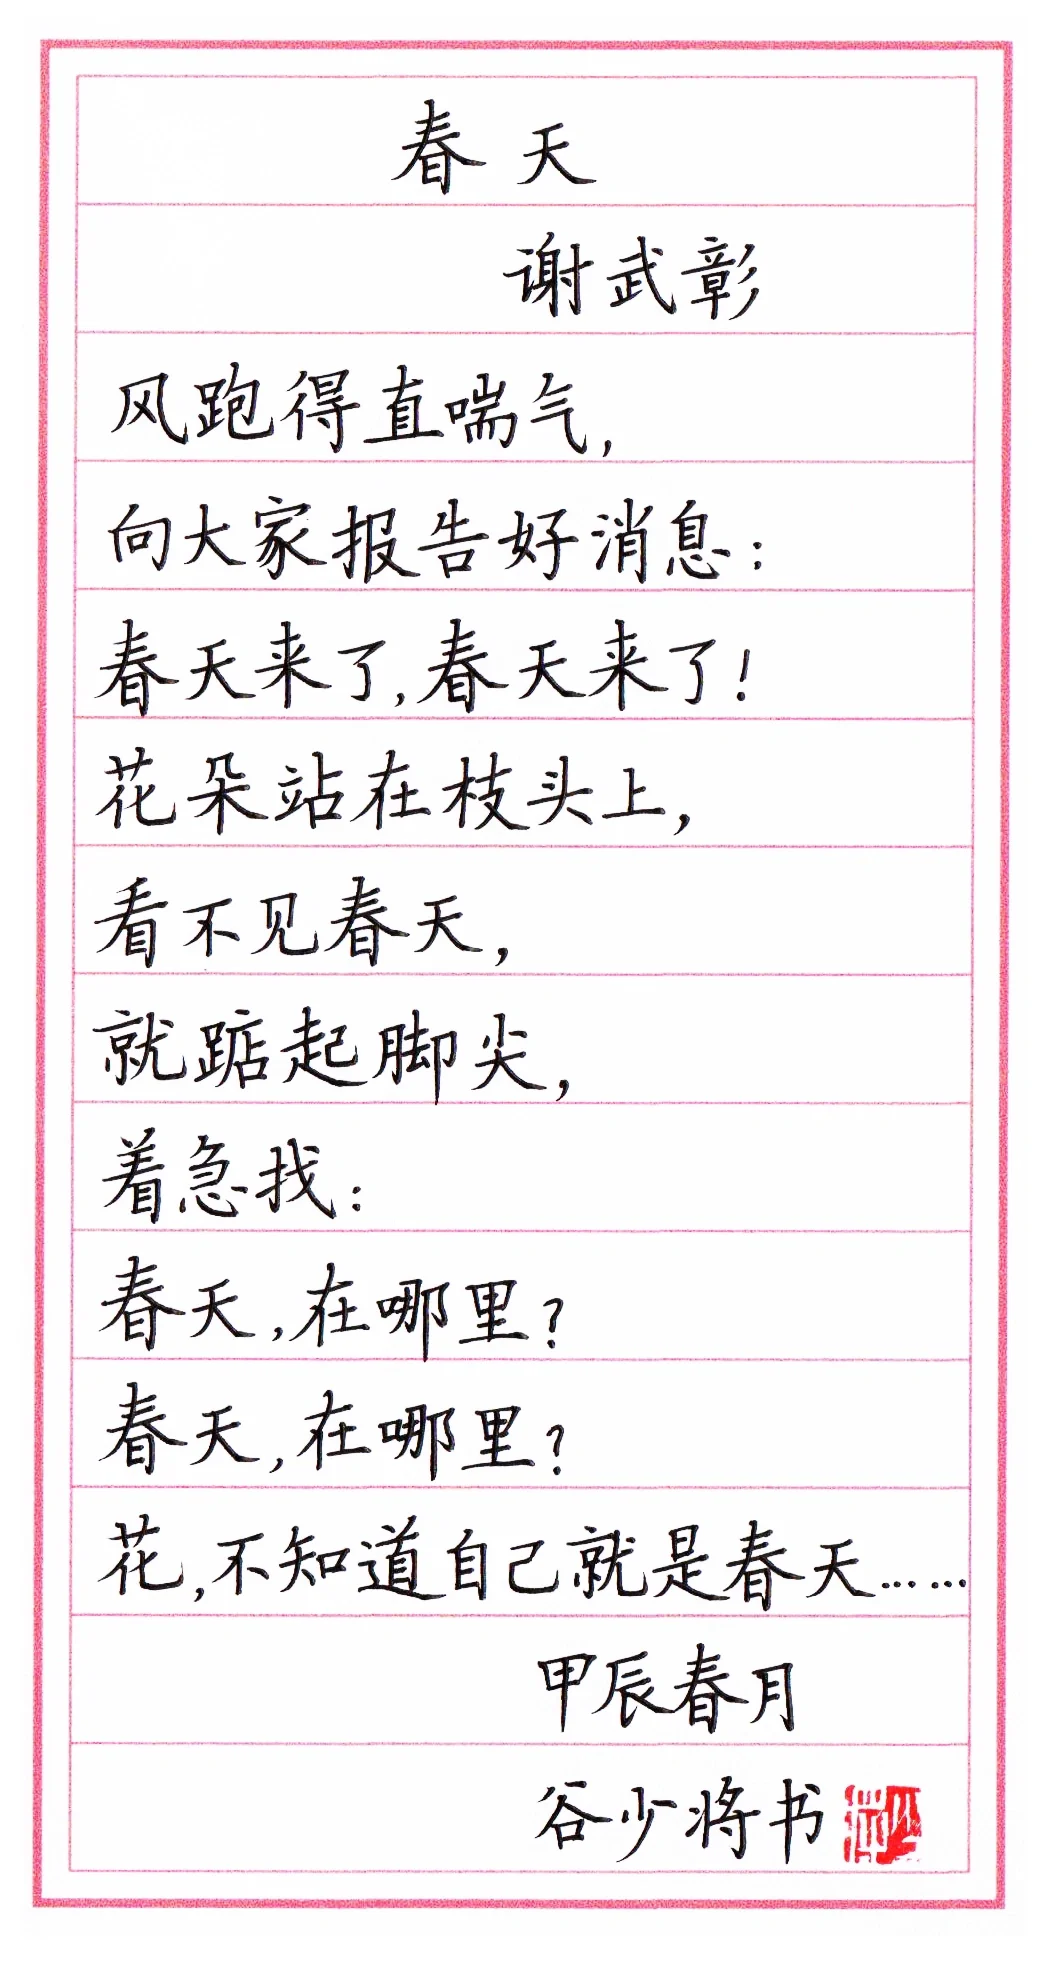 春天
谢武彰
风跑得直喘气，
向大家报告好消息：
春天来了，春天来了！
花朵站在枝头上，
看不见春天，
就踮起脚尖，
着急找：
春天，在哪里？
春天，在哪里？
花，不知道自己就是春天……
甲辰春月
谷少将书